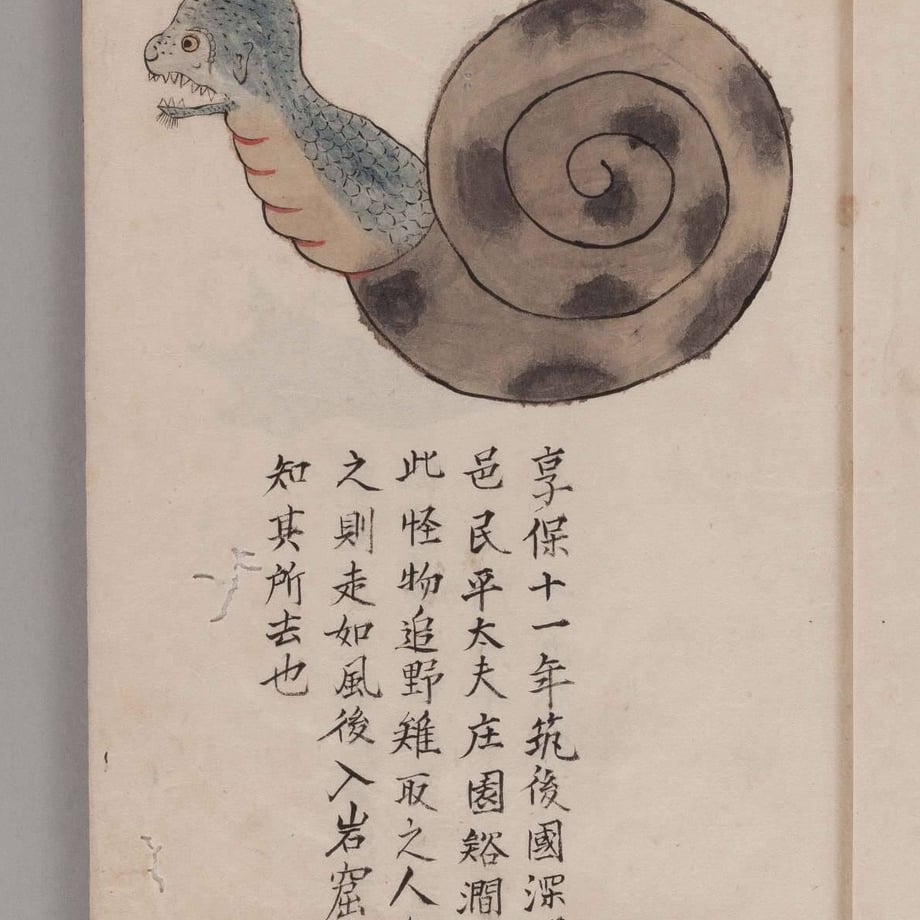 享保十一年筑後國深
邑民平太夫庄園谿澗
此怪物追野雉取之人
之則走如風後入岩窟
知其所去也